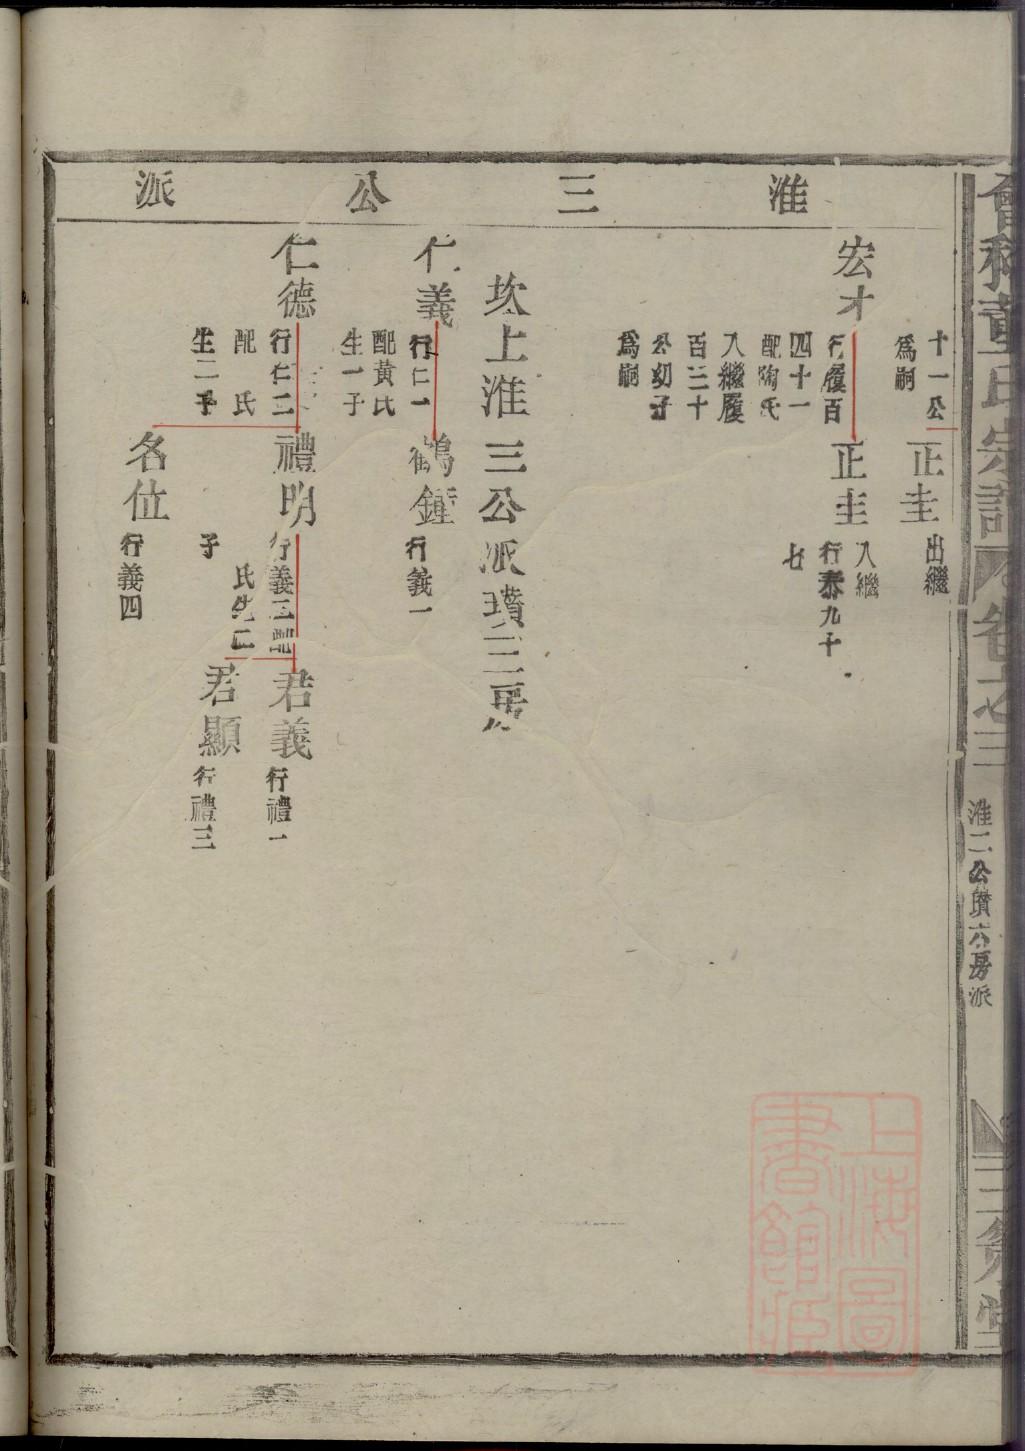 會稽董氏宗譜
卷之三
淮二公墳六房派
三策堂
淮三公派
十一公
爲嗣
正圭
出繼
宏才
行履百
四十一
配陶氏
入繼履
百三十
公幼子
爲嗣
正圭
入繼
行泰九十
七
坎上淮三公派墳三房
仁義
行仁一
配黃氏
生一子
鶴鍾
行義一
仁德
行仁二
配 氏
生二子
禮明
行義三配
氏生二
子
君義
行禮一
君顯
行禮三
名位
行義四
上海圖
書館藏